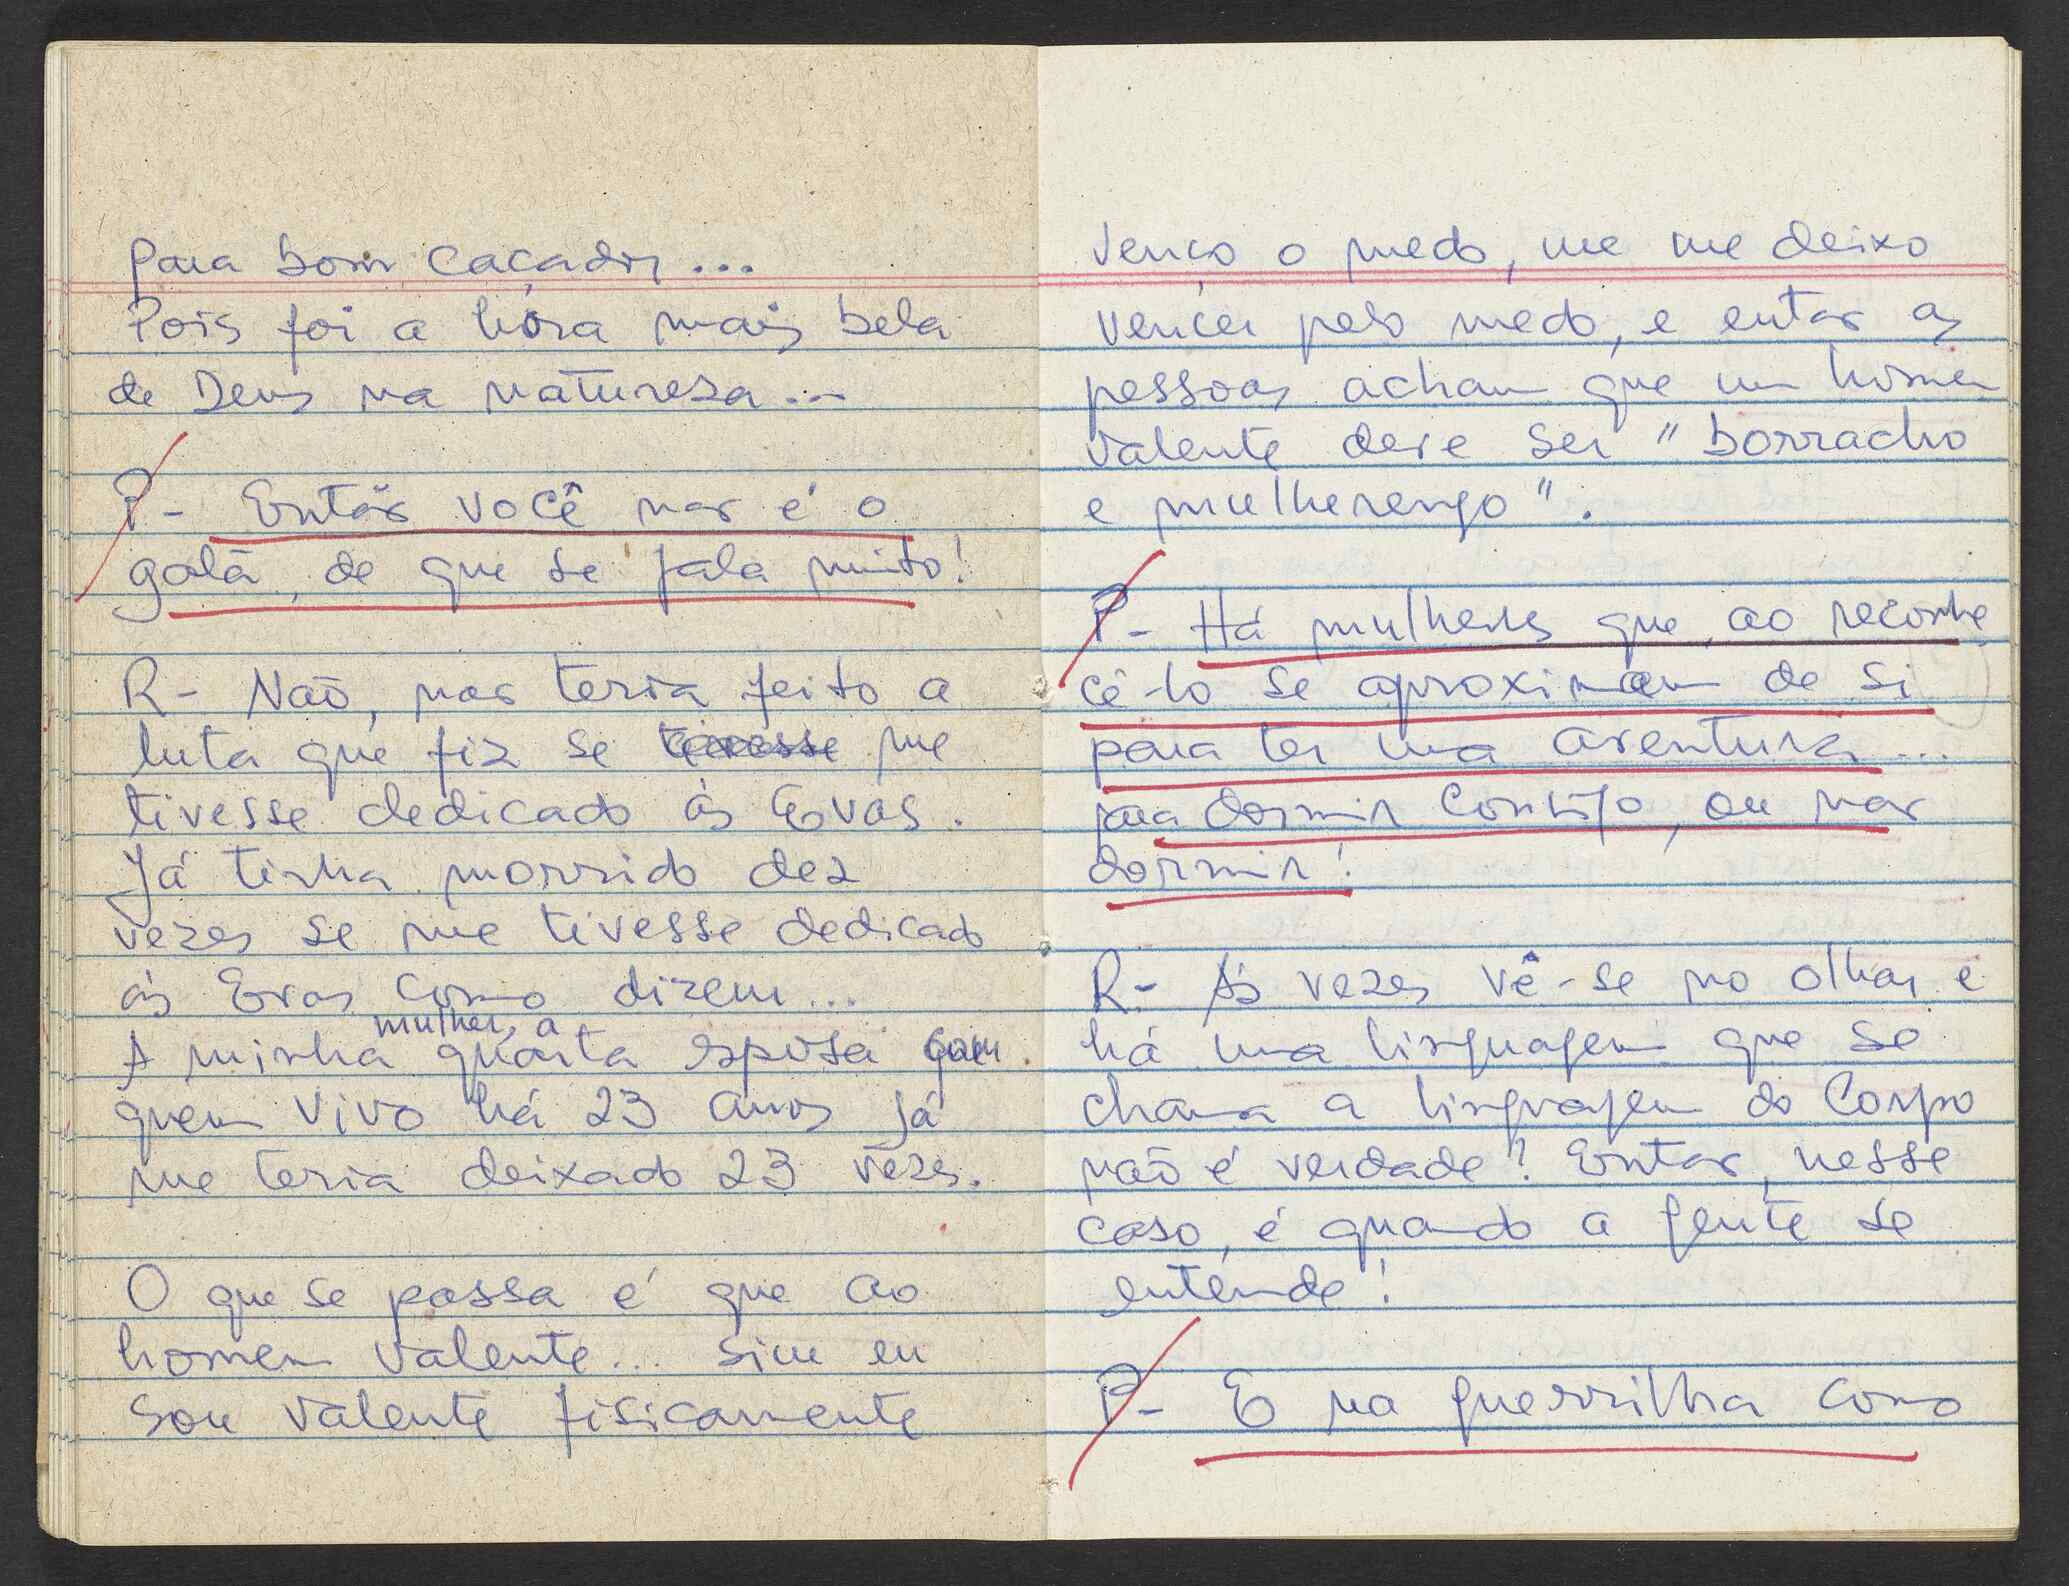 para bom caçador...
Pois foi a hora mais bela
de Deus na natureza...
P- Então você não é o
galã, de que se fala muito!
R- Não, não teria feito a
luta que fiz se tivesse me
tivesse dedicado às Evas.
Já tinha morrido dez
vezes se me tivesse dedicado
às Evas como dizem...
mulher, a
A minha quarta esposa com
quem vivo há 23 anos já
me teria deixado 23 vezes.
O que se passa é que ao
homem valente... sim eu
sou valente fisicamente
venço o medo, me me deixo
vencer pelo medo, e então as
pessoas acham que um homem
valente deve ser "borracho
e mulherengo".
P- Há mulheres que, ao reconhe
cê-lo se aproximam de si
para ter uma aventura...
para dormir contigo, ou não
dormir!
R- Às vezes vê-se no olhar e
há uma linguagem que se
chama a linguagem do corpo
não é verdade? Então, nesse
caso, é quando a gente se
entende!
P- E na guerrilha como